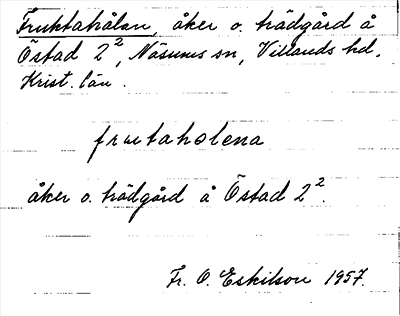 Fruktahålan, åker o. trädgård å
Östad 2², Näsums sn, Villands hd.
Krist. län.
fruktaholena
åker o. trädgård å Östad 2².
Fr. O. Eskilson 1957.